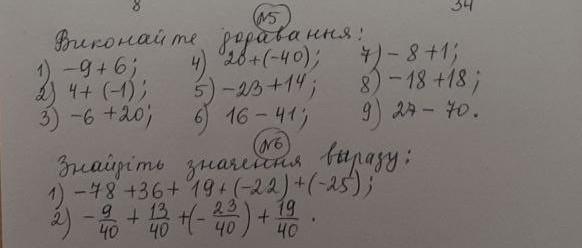 8 34
№5
Виконайте додавання:
1) -9+6; 4) 20+(-40); 7) -8+1;
2) 4+(-1); 5) -23+14; 8) -18+18;
3) -6+20; 6) 16-41; 9) 27-70.
№6
Знайдіть значення виразу:
1) -78+36+19+(-22)+(-25);
2) -9/40 + 13/40 + (-23/40) + 19/40.